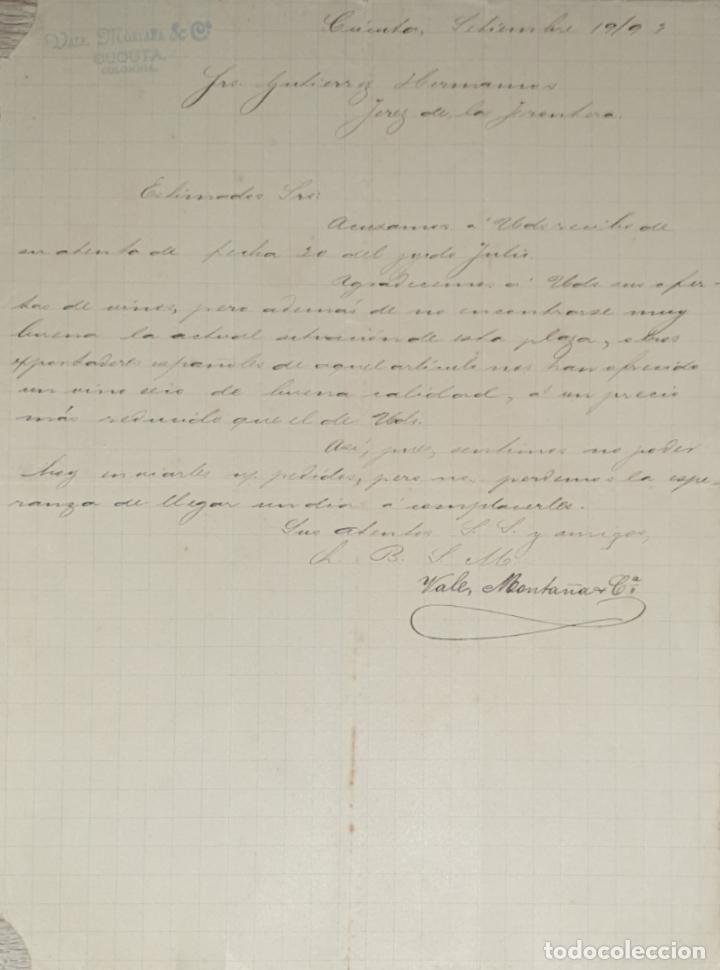 Cúcuta, Setiembre 19/9
Vale, & Cª
CUCUTA
COLOMBIA
Srs. Gutierrez Hermanos
Jerez de la Frontera.
Estimados Srs:
Acusamos á Uds recibo de
su atenta de fecha 20 del ppdo Julio.
Agradecemos á Uds sus ofer-
tas de vinos, pero además de no encontrarse muy
buena la actual situación de esta plaza, otros
exportadores españoles de aquel artículo nos han ofrecido
un vino seco de buena calidad, á un precio
más reducido que el de Uds.
Así, pues, sentimos no poder
hoy enviarles pedidos, pero no perdemos la espe-
ranza de llegar un día á complacerles.
Sus atentos S. S. y amigos,
Q. B. S. M.
Vale, Montaña & Cª
todocoleccion